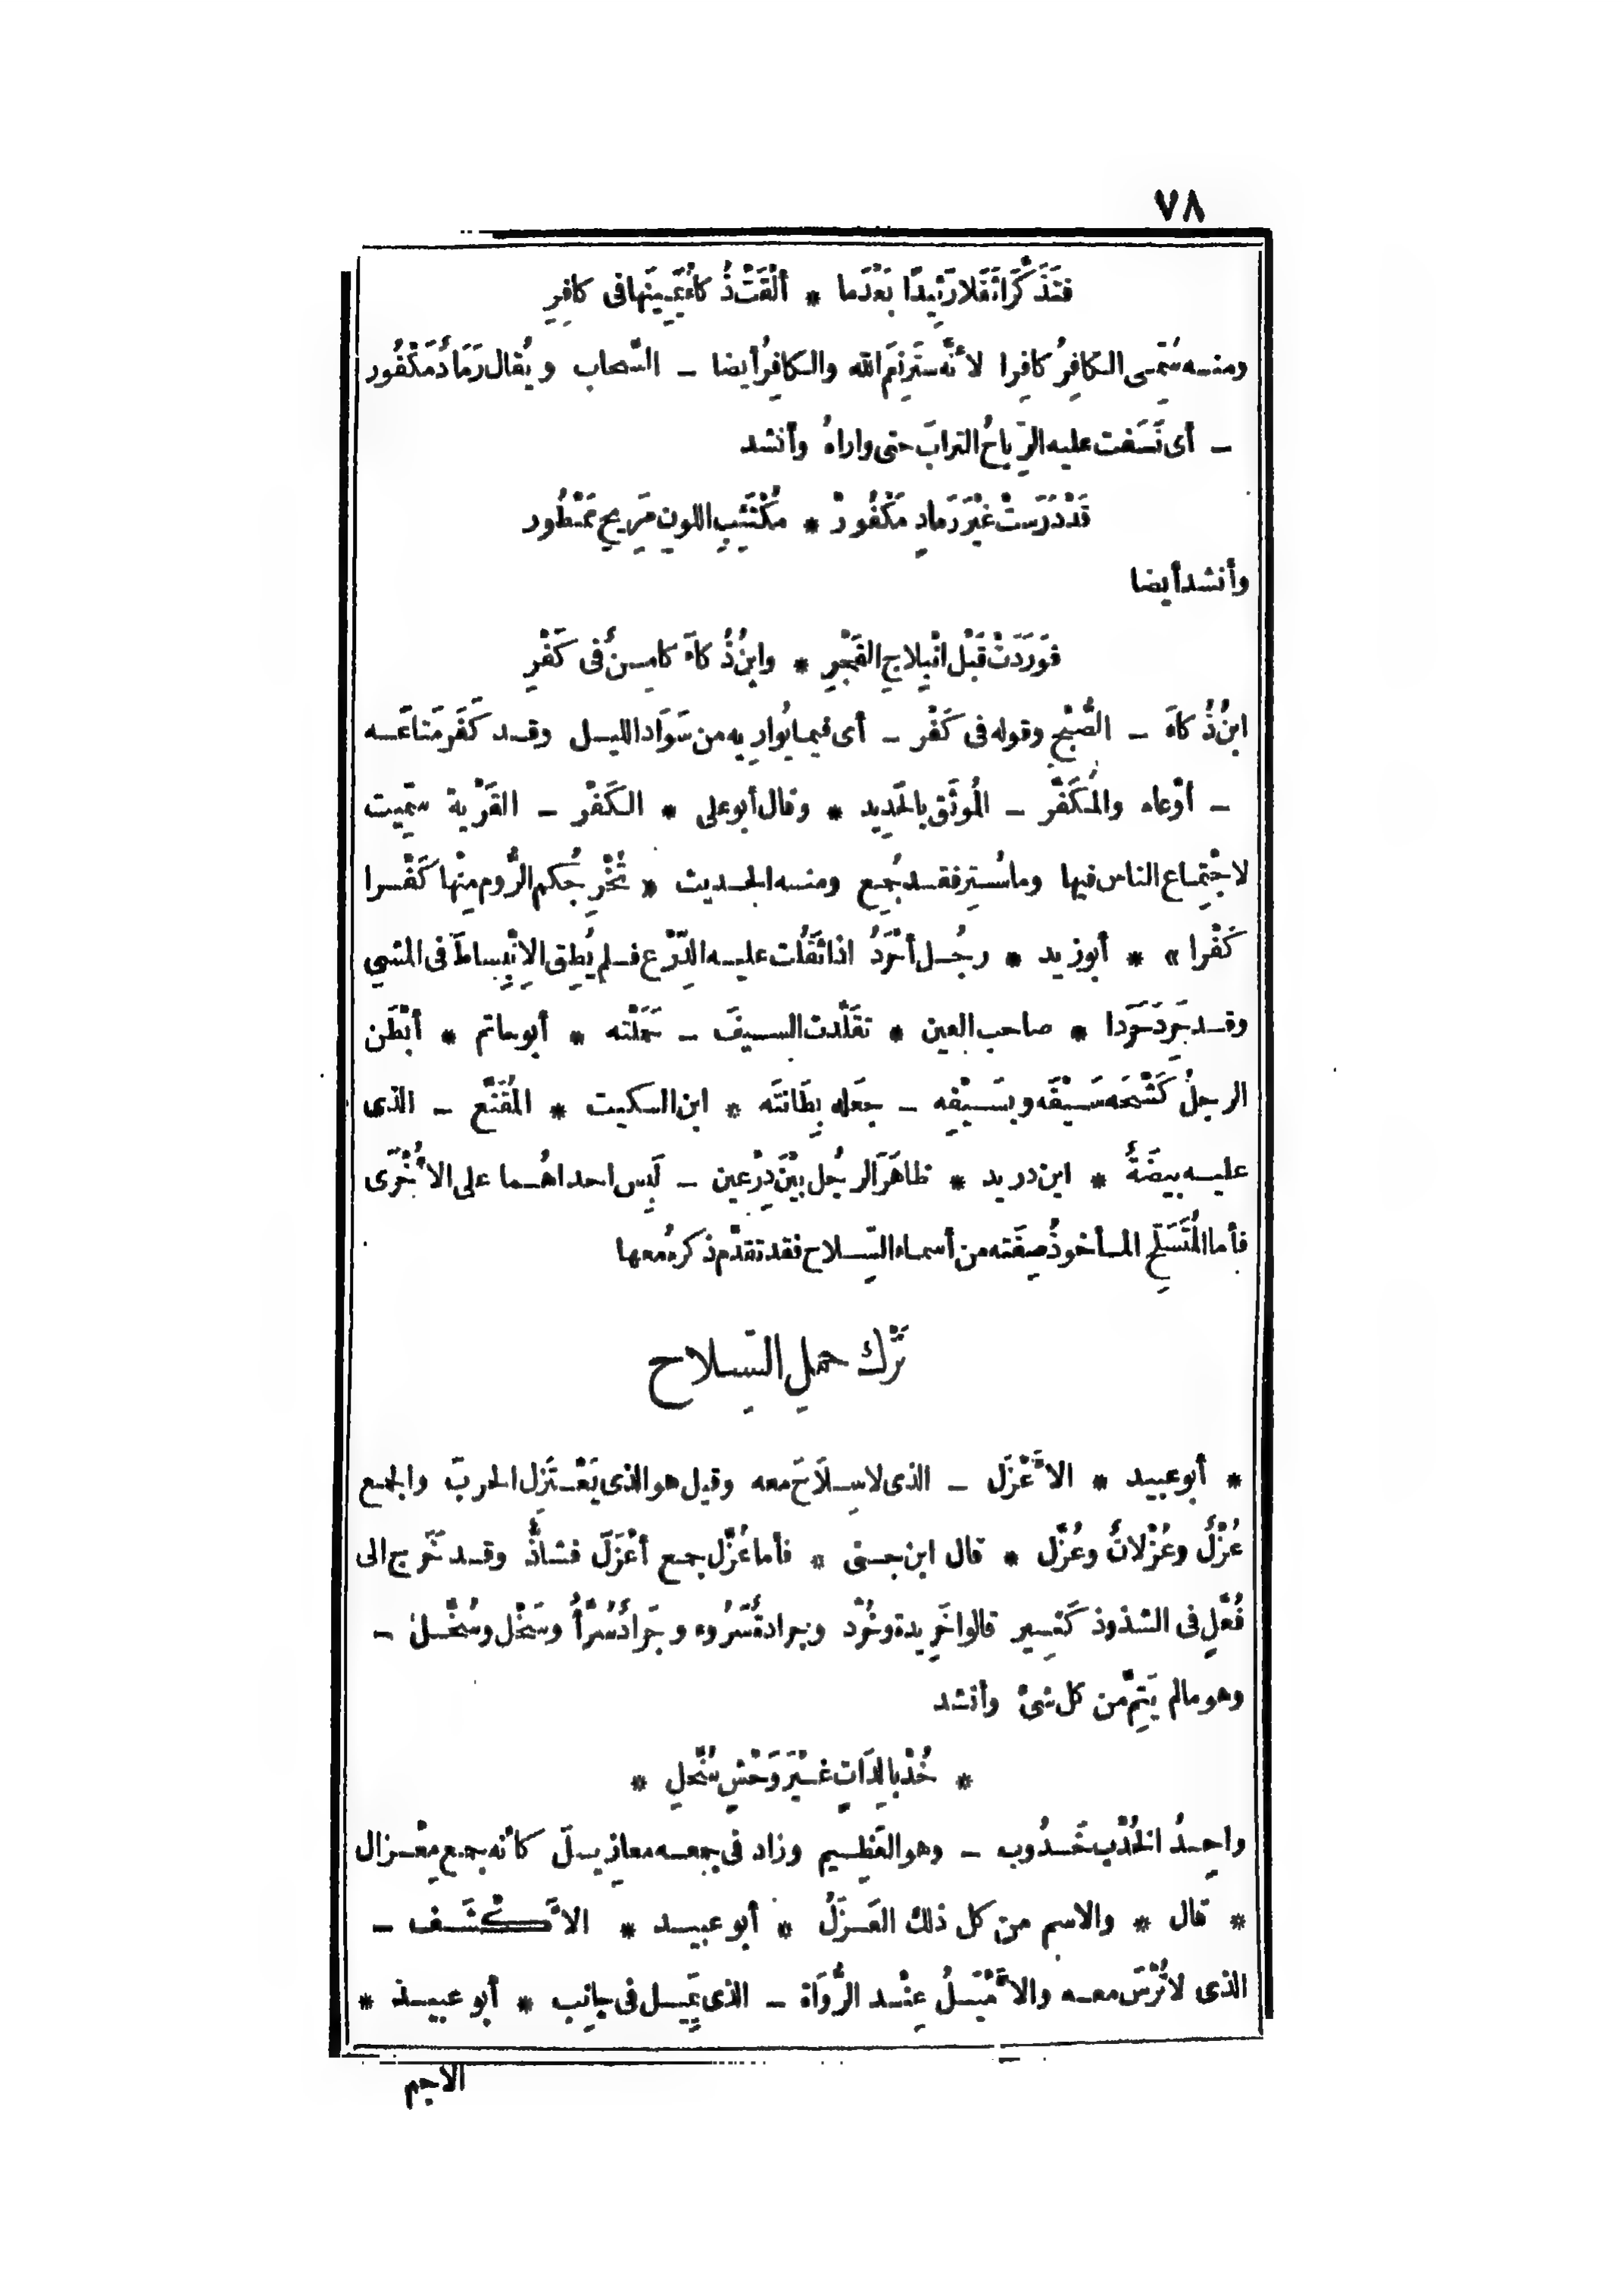 ٧٨
فتَذَكَّرَا ثَقَلا رَثِيدًا بَعْدَما * أَلْقَتْ ذُكاءُ يَمِينَها فى كافِرِ
ومنه سُمِّى الكافِرُ كافِرا لأنَّه ستَر نِعَم الله والكافِرُ أيضا - السَّحاب ويُقال رَمَادُ مَكْفُور
- أى نَسَفت عليه الرِّياحُ الترابَ حتى واراهُ وأنشد
قَدْ دَرَسَتْ غَيْرَ رَمادٍ مَكْفُورْ * مُكْتَئِبِ اللونِ مَرِيحٍ مَمْطُور
وأنشد أيضا
فوَرَدَتْ قَبْل انْبِلاجِ الفَجْرِ * وابنُ ذُكاءَ كامِنٌ فى كَفْرِ
ابنُ ذُكاءَ - الصُّبْح وقوله فى كَفْر - أى فيما يُوارِيه من سَوَاد الليل وقد كَفَر مَتاعَه
- أوْعاه والمُكَفَّر - المُوثَق بالحَدِيد * وقال أبوعلى * الكَفْر - القَرْية سمِّيت
لاجْتِماع الناس فيها وما سُتِر فقد جُمِع ومنه الحديث « تُخْرِجُكم الرُّوم مِنْها كَفْرا
كَفْرا » * أبوزيد * رجُل أحْرَدُ اذا ثَقُلت عليه الدِّرْع فلم يُطِق الانْبِساطَ فى المشي
وقد حَرِدَ حَرَدا * صاحب العين * تقلَّدت السيفَ - حَمَلْته * أبوحاتم * أبْطَن
الرجلُ كَشْحَه سَيْفَه وبسَيْفِه - جعَله بِطَانتَه * ابن السكيت * المُقَنَّع - الذى
عليه بيضَةٌ * ابن دريد * ظاهَرَ الرجُل بيْنَ دِرْعين - لَبِس احداهُما على الأُخْرَى
فأما المُتَسَلِّح المأخوذُ صِفَته من أسماء السِّلاح فقد تقدَّم ذكرهُ معها
تَرْك حملِ السِّلاح
* أبوعبيد * الأَعْزَل - الذى لا سِلَاحَ معه وقيل هو الذى يَعْتَزِل الحربَ والجمع
عُزْلٌ وعُزْلانٌ وعُزَّل * قال ابن جنى * فأما عُزَّل جمع أعْزَلَ فشاذٌّ وقد خَرج الى
فُعَّلٍ فى الشذوذ كَفَسِير قالوا خَرِيدة وخُرَّد وجرادةٌ سَرُوء وجَرادٌ سُرَّأٌ وسَخْل وسُخَّل -
وهو مالم يَتِمَّ من كل شئ وأنشد
* خُدْبا لِدَاتٍ غيْرَ وَخْشٍ سُخَّلِ *
واحِدُ الخُدْب خَدُوب - وهو العَظِيم وزاد فى جمعه معازِيلَ كأنه جمع مِعْزال
* قال * والاسم من كل ذلك العَزَلُ * أبو عبيد * الأَكْشَف -
الذى لا تُرْسَ معه والأَمْيَلُ عِنْد الرُّوَاة - الذى يَمِيل فى جانِب * أبو عبيد *
الاجم